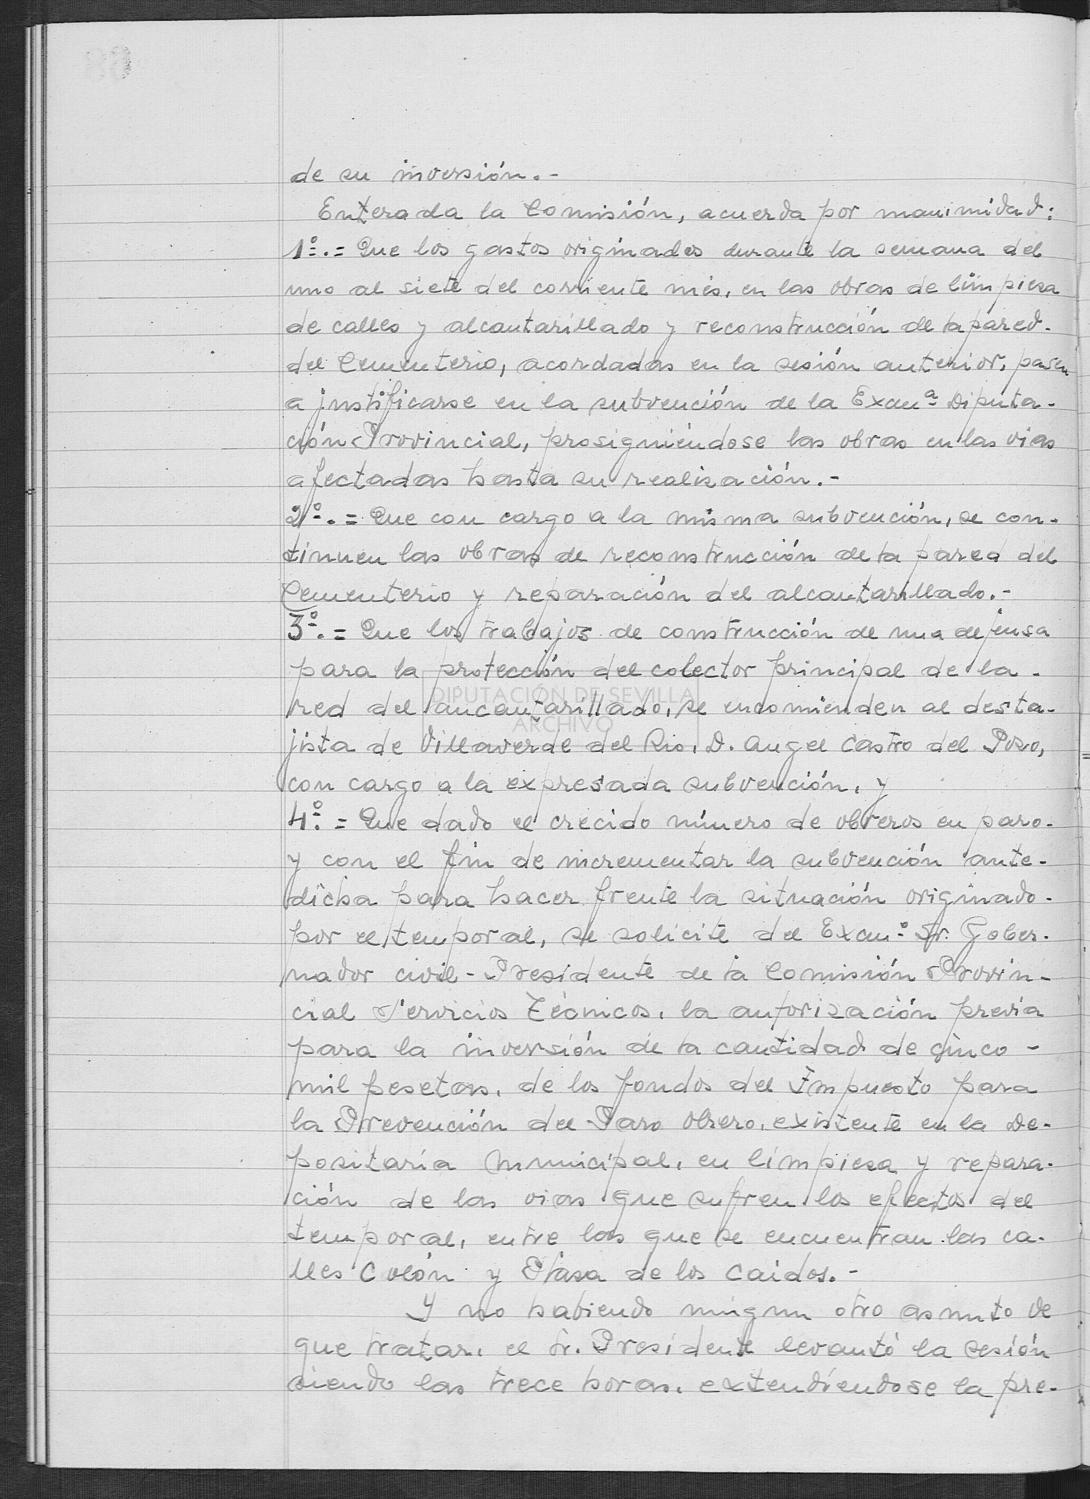 de su inversión.-
Enterada la Comisión, acuerda por manimidad:
1º.= Que los gastos originados durante la semana del
uno al siete del corriente mes, en las obras de limpiesa
de calles y alcantarillado y reconstrucción de la pared.
del Cementerio, acordadas en la sesión anterior, pasen
a justificarse en la subvención de la Excmª Diputa-
ción Provincial, prosiguiéndose las obras en las vias
afectadas hasta su realización.-
2º.= Que con cargo a la misma subvención, se con-
tinuen las obras de reconstrucción de la pared del
Cementerio y reparación del alcantarillado.-
3º.= Que los trabajos de construcción de una defensa
para la protección del colector principal de la -
red del ancantarillado, se encomienden al desta-
jista de Villaverde del Rio, D. Angel Castro del Poso,
con cargo a la expresada subvención, y
4º.= Que dado el crecido número de obreros en paro-
y con el fin de incrementar la subvención ante-
dicha para hacer frente la situación originado-
por el temporal, se solicite del Excmº Sr. Gober-
nador civil-Presidente de la Comisión Provin-
cial Servicios Técnicos, la autorización previa
para la inversión de la cantidad de cinco -
mil pesetas, de los fondos del Impuesto para
la Prevención del Paro Obrero, existente en la De-
positaría Municipal, en limpiesa y repara-
ción de las vias que sufren los efectos del
temporal, entre las que se encuentran las ca-
lles Colón y Plasa de los Caidos.-
Y no habiendo ningun otro asunto de
que tratar, el Sr. Presidente levantó la sesión
siendo las trece horas, extendiéndose la pre-
DIPUTACIÓN DE SEVILLA
ARCHIVO